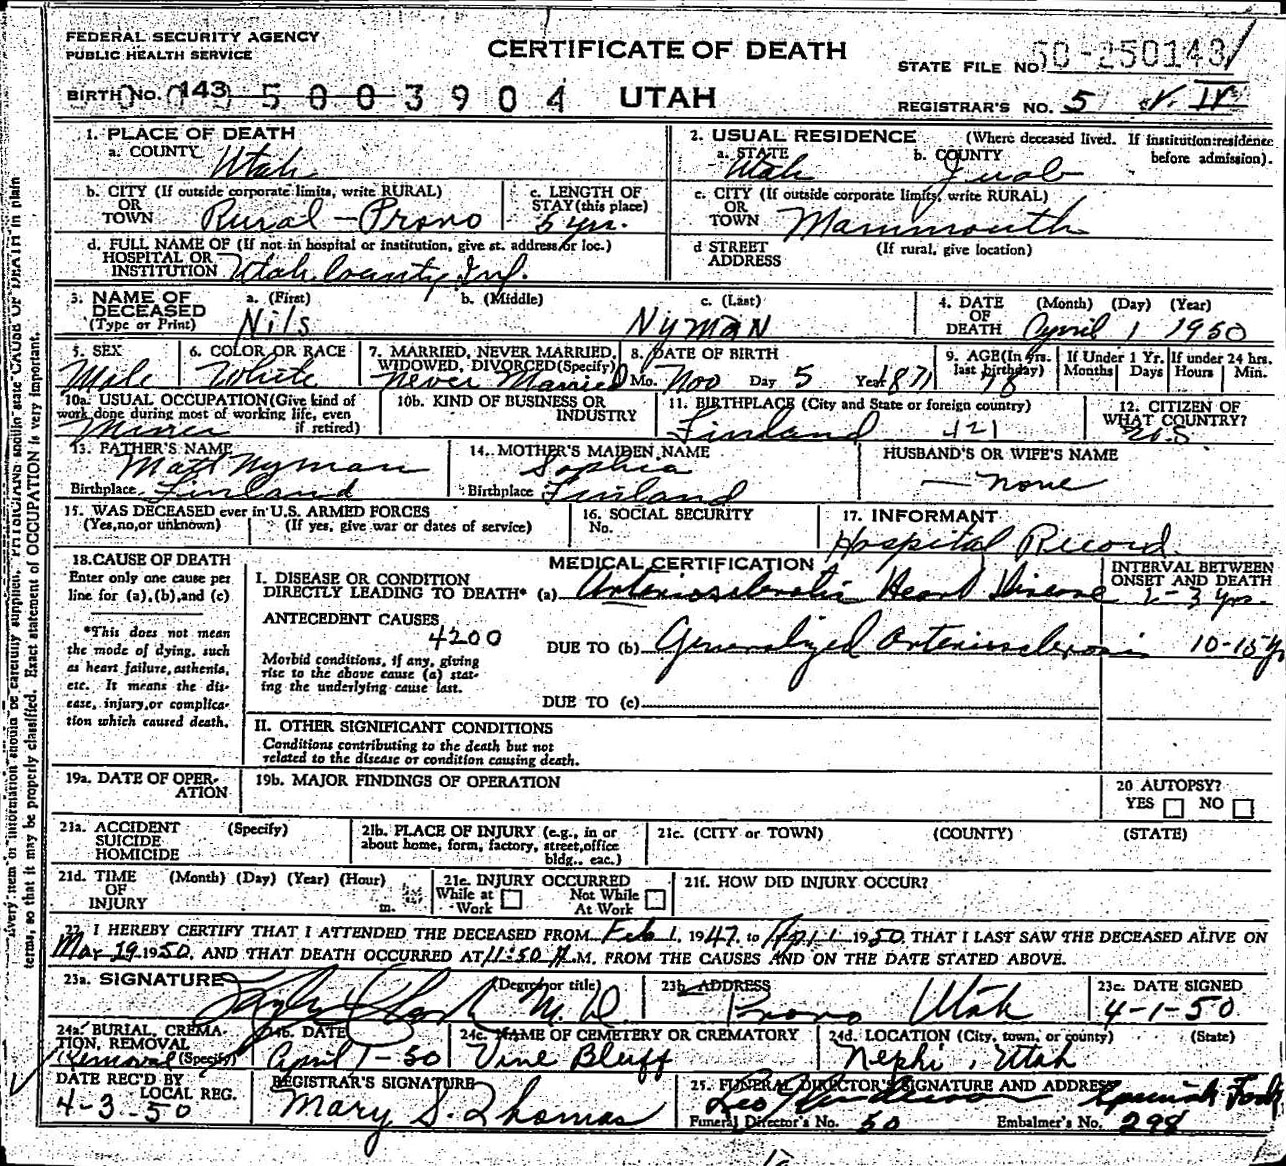 FEDERAL SECURITY AGENCY
PUBLIC HEALTH SERVICE
CERTIFICATE OF DEATH
UTAH
STATE FILE NO. 50-250143
BIRTH NO. 143
5003904
REGISTRAR'S NO. 5
1. PLACE OF DEATH
a. COUNTY Utah
2. USUAL RESIDENCE (Where deceased lived. If institution:residence before admission).
a. STATE Utah b. COUNTY Juab
b. CITY (If outside corporate limits, write RURAL)
OR TOWN Rural - Provo
c. LENGTH OF STAY (this place) 5 yrs.
c. CITY (If outside corporate limits, write RURAL)
OR TOWN Mammouth
d. FULL NAME OF (If not in hospital or institution, give st. address or loc.)
HOSPITAL OR INSTITUTION Utah County Inf.
d STREET ADDRESS (If rural, give location)
3. NAME OF DECEASED (Type or Print)
a. (First) Nils b. (Middle) c. (Last) Nyman
4. DATE OF DEATH (Month) (Day) (Year) April 1 1950
5. SEX Male
6. COLOR OR RACE White
7. MARRIED, NEVER MARRIED, WIDOWED, DIVORCED (Specify) Never Married
8. DATE OF BIRTH Mo. Nov Day 5 Year 1871
9. AGE (In yrs. last birthday) 78
If Under 1 Yr. Months Days
If under 24 hrs. Hours Min.
10a. USUAL OCCUPATION (Give kind of work done during most of working life, even if retired) Miner
10b. KIND OF BUSINESS OR INDUSTRY
11. BIRTHPLACE (City and State or foreign country) Finland 421
12. CITIZEN OF WHAT COUNTRY? U.S.
13. FATHER'S NAME Matt Nyman
Birthplace Finland
14. MOTHER'S MAIDEN NAME Sophia
Birthplace Finland
HUSBAND'S OR WIFE'S NAME
— none
15. WAS DECEASED ever in U.S. ARMED FORCES
(Yes,no,or unknown) (If yes, give war or dates of service)
16. SOCIAL SECURITY No.
17. INFORMANT Hospital Record
18. CAUSE OF DEATH
Enter only one cause per line for (a),(b),and (c)
*This does not mean the mode of dying, such as heart failure, asthenia, etc. It means the disease, injury, or complication which caused death.
MEDICAL CERTIFICATION
INTERVAL BETWEEN ONSET AND DEATH
I. DISEASE OR CONDITION DIRECTLY LEADING TO DEATH* (a) Arteriosclerotic Heart Disease 2-3 yrs.
ANTECEDENT CAUSES 4200
Morbid conditions, if any, giving rise to the above cause (a) stating the underlying cause last.
DUE TO (b) Generalized Arteriosclerosis 10-15 yr
DUE TO (c)
II. OTHER SIGNIFICANT CONDITIONS
Conditions contributing to the death but not related to the disease or condition causing death.
19a. DATE OF OPERATION
19b. MAJOR FINDINGS OF OPERATION
20 AUTOPSY?
YES NO
21a. ACCIDENT SUICIDE HOMICIDE (Specify)
21b. PLACE OF INJURY (e.g., in or about home, form, factory, street,office bldg., eac.)
21c. (CITY or TOWN) (COUNTY) (STATE)
21d. TIME OF INJURY (Month) (Day) (Year) (Hour) m.
21e. INJURY OCCURRED
While at Work Not While At Work
21f. HOW DID INJURY OCCUR?
22. I HEREBY CERTIFY THAT I ATTENDED THE DECEASED FROM Feb 1, 1947, to April 1 1950, THAT I LAST SAW THE DECEASED ALIVE ON
Mar 19 1950, AND THAT DEATH OCCURRED AT 11:50 A.M. FROM THE CAUSES AND ON THE DATE STATED ABOVE.
23a. SIGNATURE (Degree or title) M.D.
23b. ADDRESS Provo Utah
23c. DATE SIGNED 4-1-50
24a. BURIAL, CREMATION, REMOVAL (Specify) Removal
24b. DATE April 1-50
24c. NAME OF CEMETERY OR CREMATORY Vine Bluff
24d. LOCATION (City, town, or county) (State) Nephi, Utah
DATE REC'D BY LOCAL REG. 4-3-50
REGISTRAR'S SIGNATURE Mary S. Thomas
25. FUNERAL DIRECTOR'S SIGNATURE AND ADDRESS
Leo Anderson Spanish Fork
Funeral Director's No. 50 Embalmer's No. 298
terms, so that it may be properly classified. Exact statement of OCCUPATION is very important.